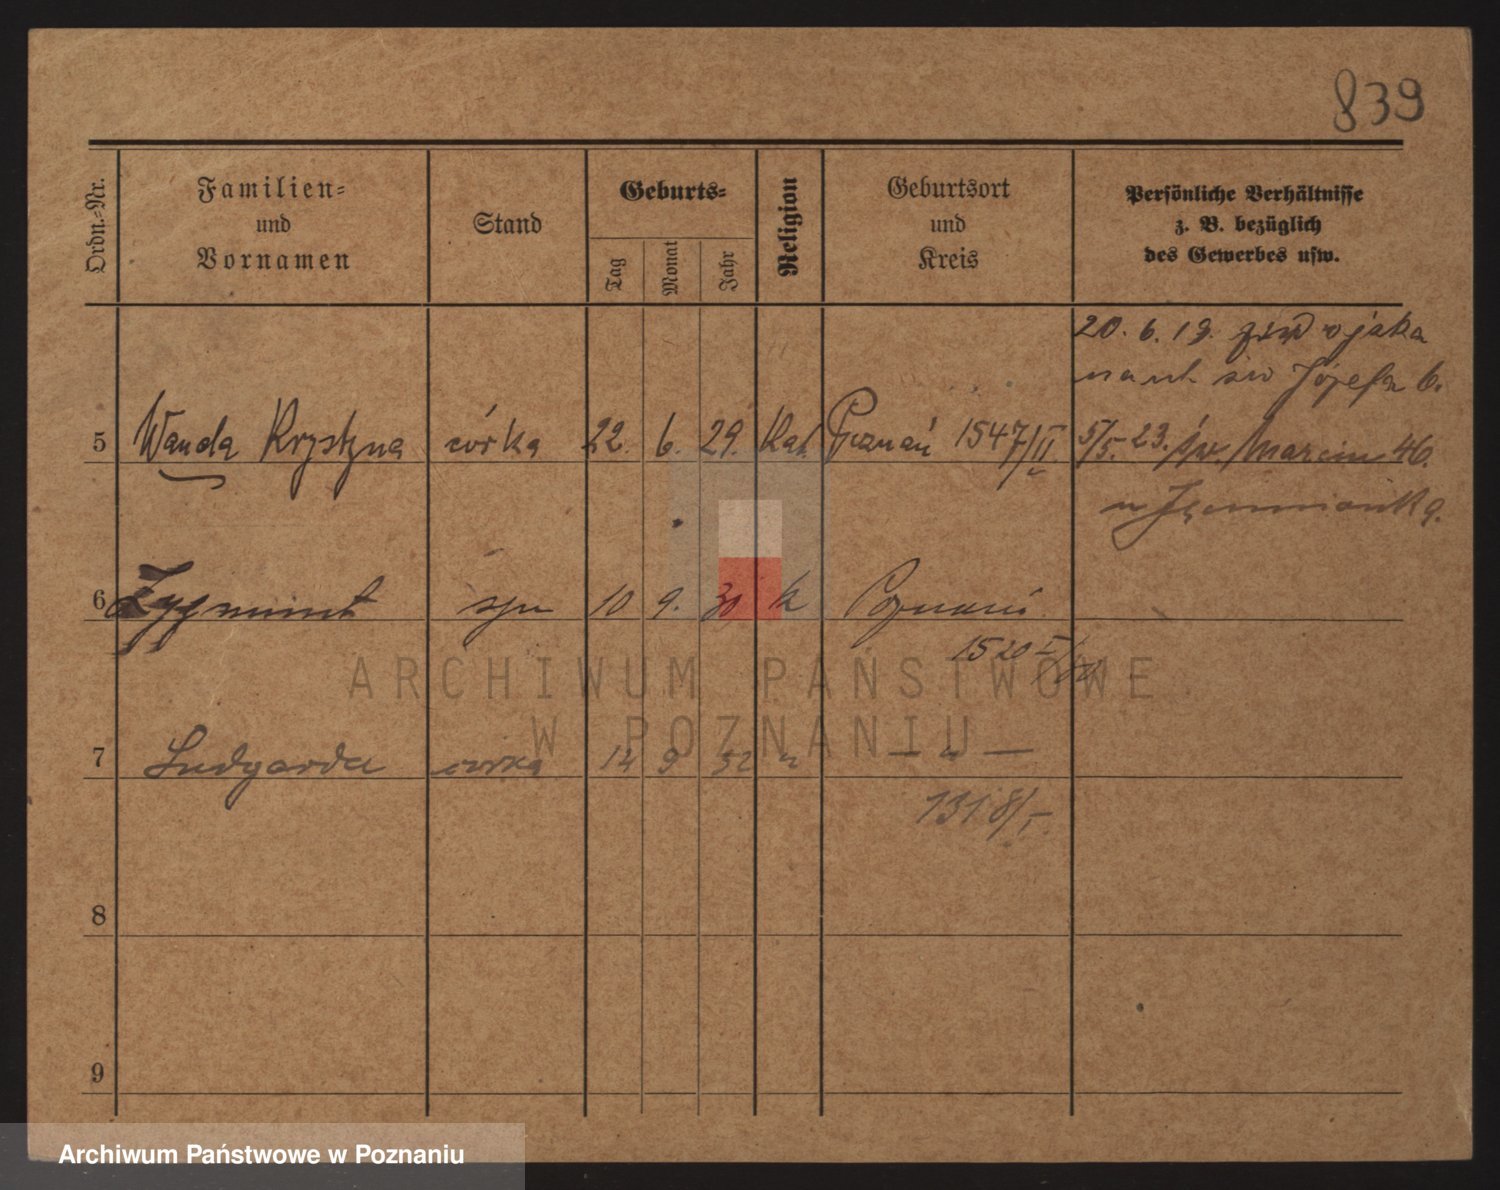 839
Ordn.=Nr.
Familien=
und
Vornamen
Stand
Geburts=
Tag
Monat
Jahr
Religion
Geburtsort
und
Kreis
Persönliche Verhältnisse
z. B. bezüglich
des Gewerbes usw.
20. 6. 19.
św Józefa 6.
5 Wanda Krystyna córka 22. 6. 29. Kat. Poznań 1547/II 5/5. 23. św. Marcin 46.
6 Zygmunt syn 10 9. 30 k Poznań
1520 I/30
7 Ludgarda córka 14 9 32 " — " —
1318/I
8
9
ARCHIWUM PAŃSTWOWE
W POZNANIU
Archiwum Państwowe w Poznaniu